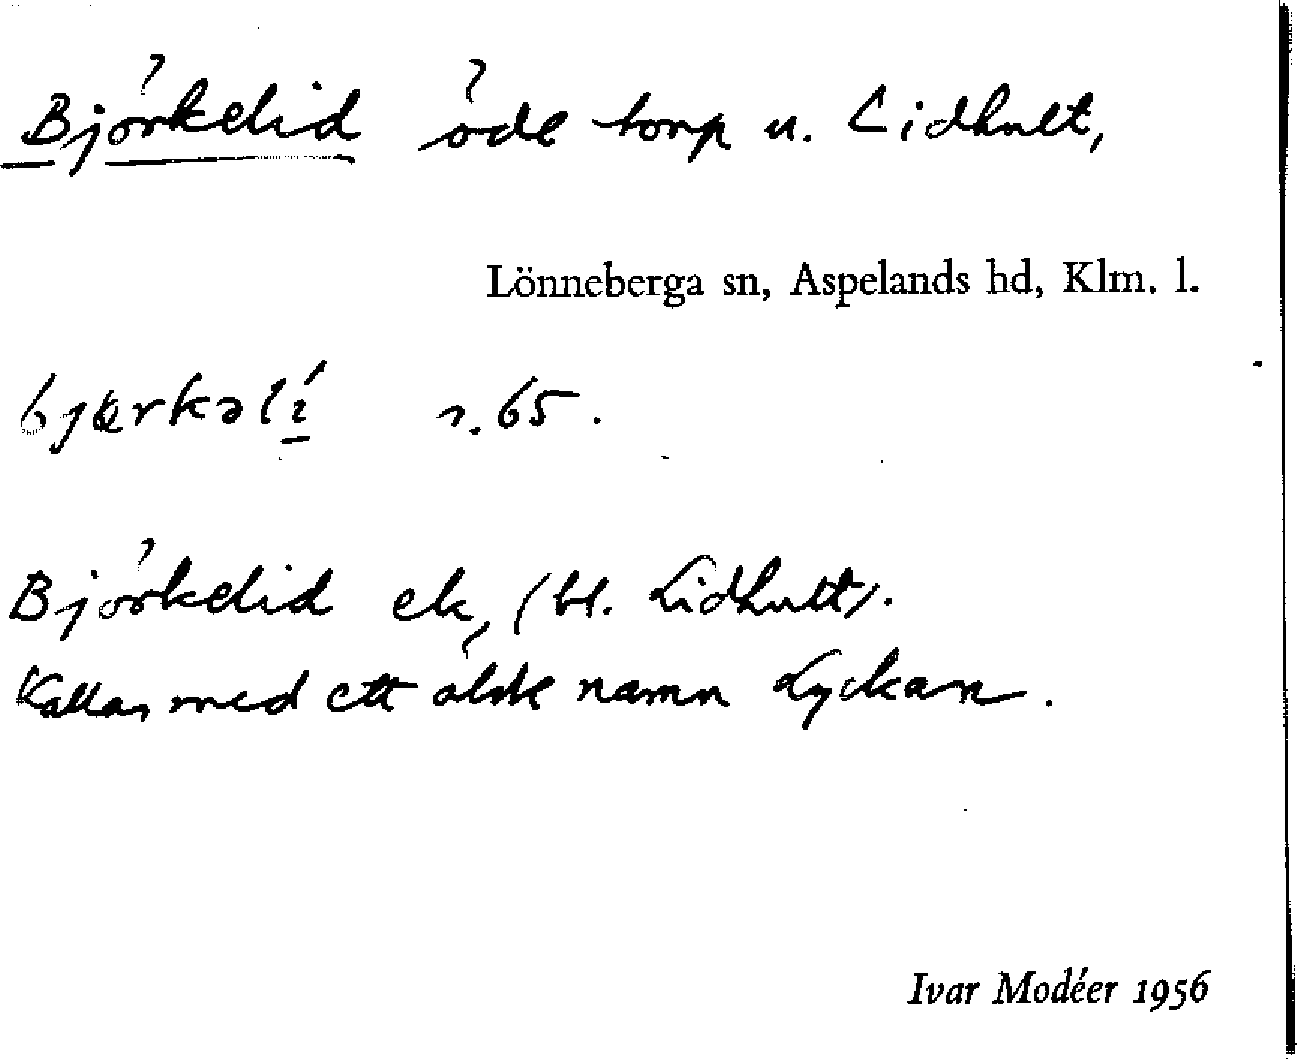 Björkelid öde torp u. Lidhult,
Lönneberga sn, Aspelands hd, Klm. l.
bjærkəlí s. 65.
Björkelid ek, (bl. Lidhult).
Kallas med ett äldre namn Lyckan.
Ivar Modéer 1956